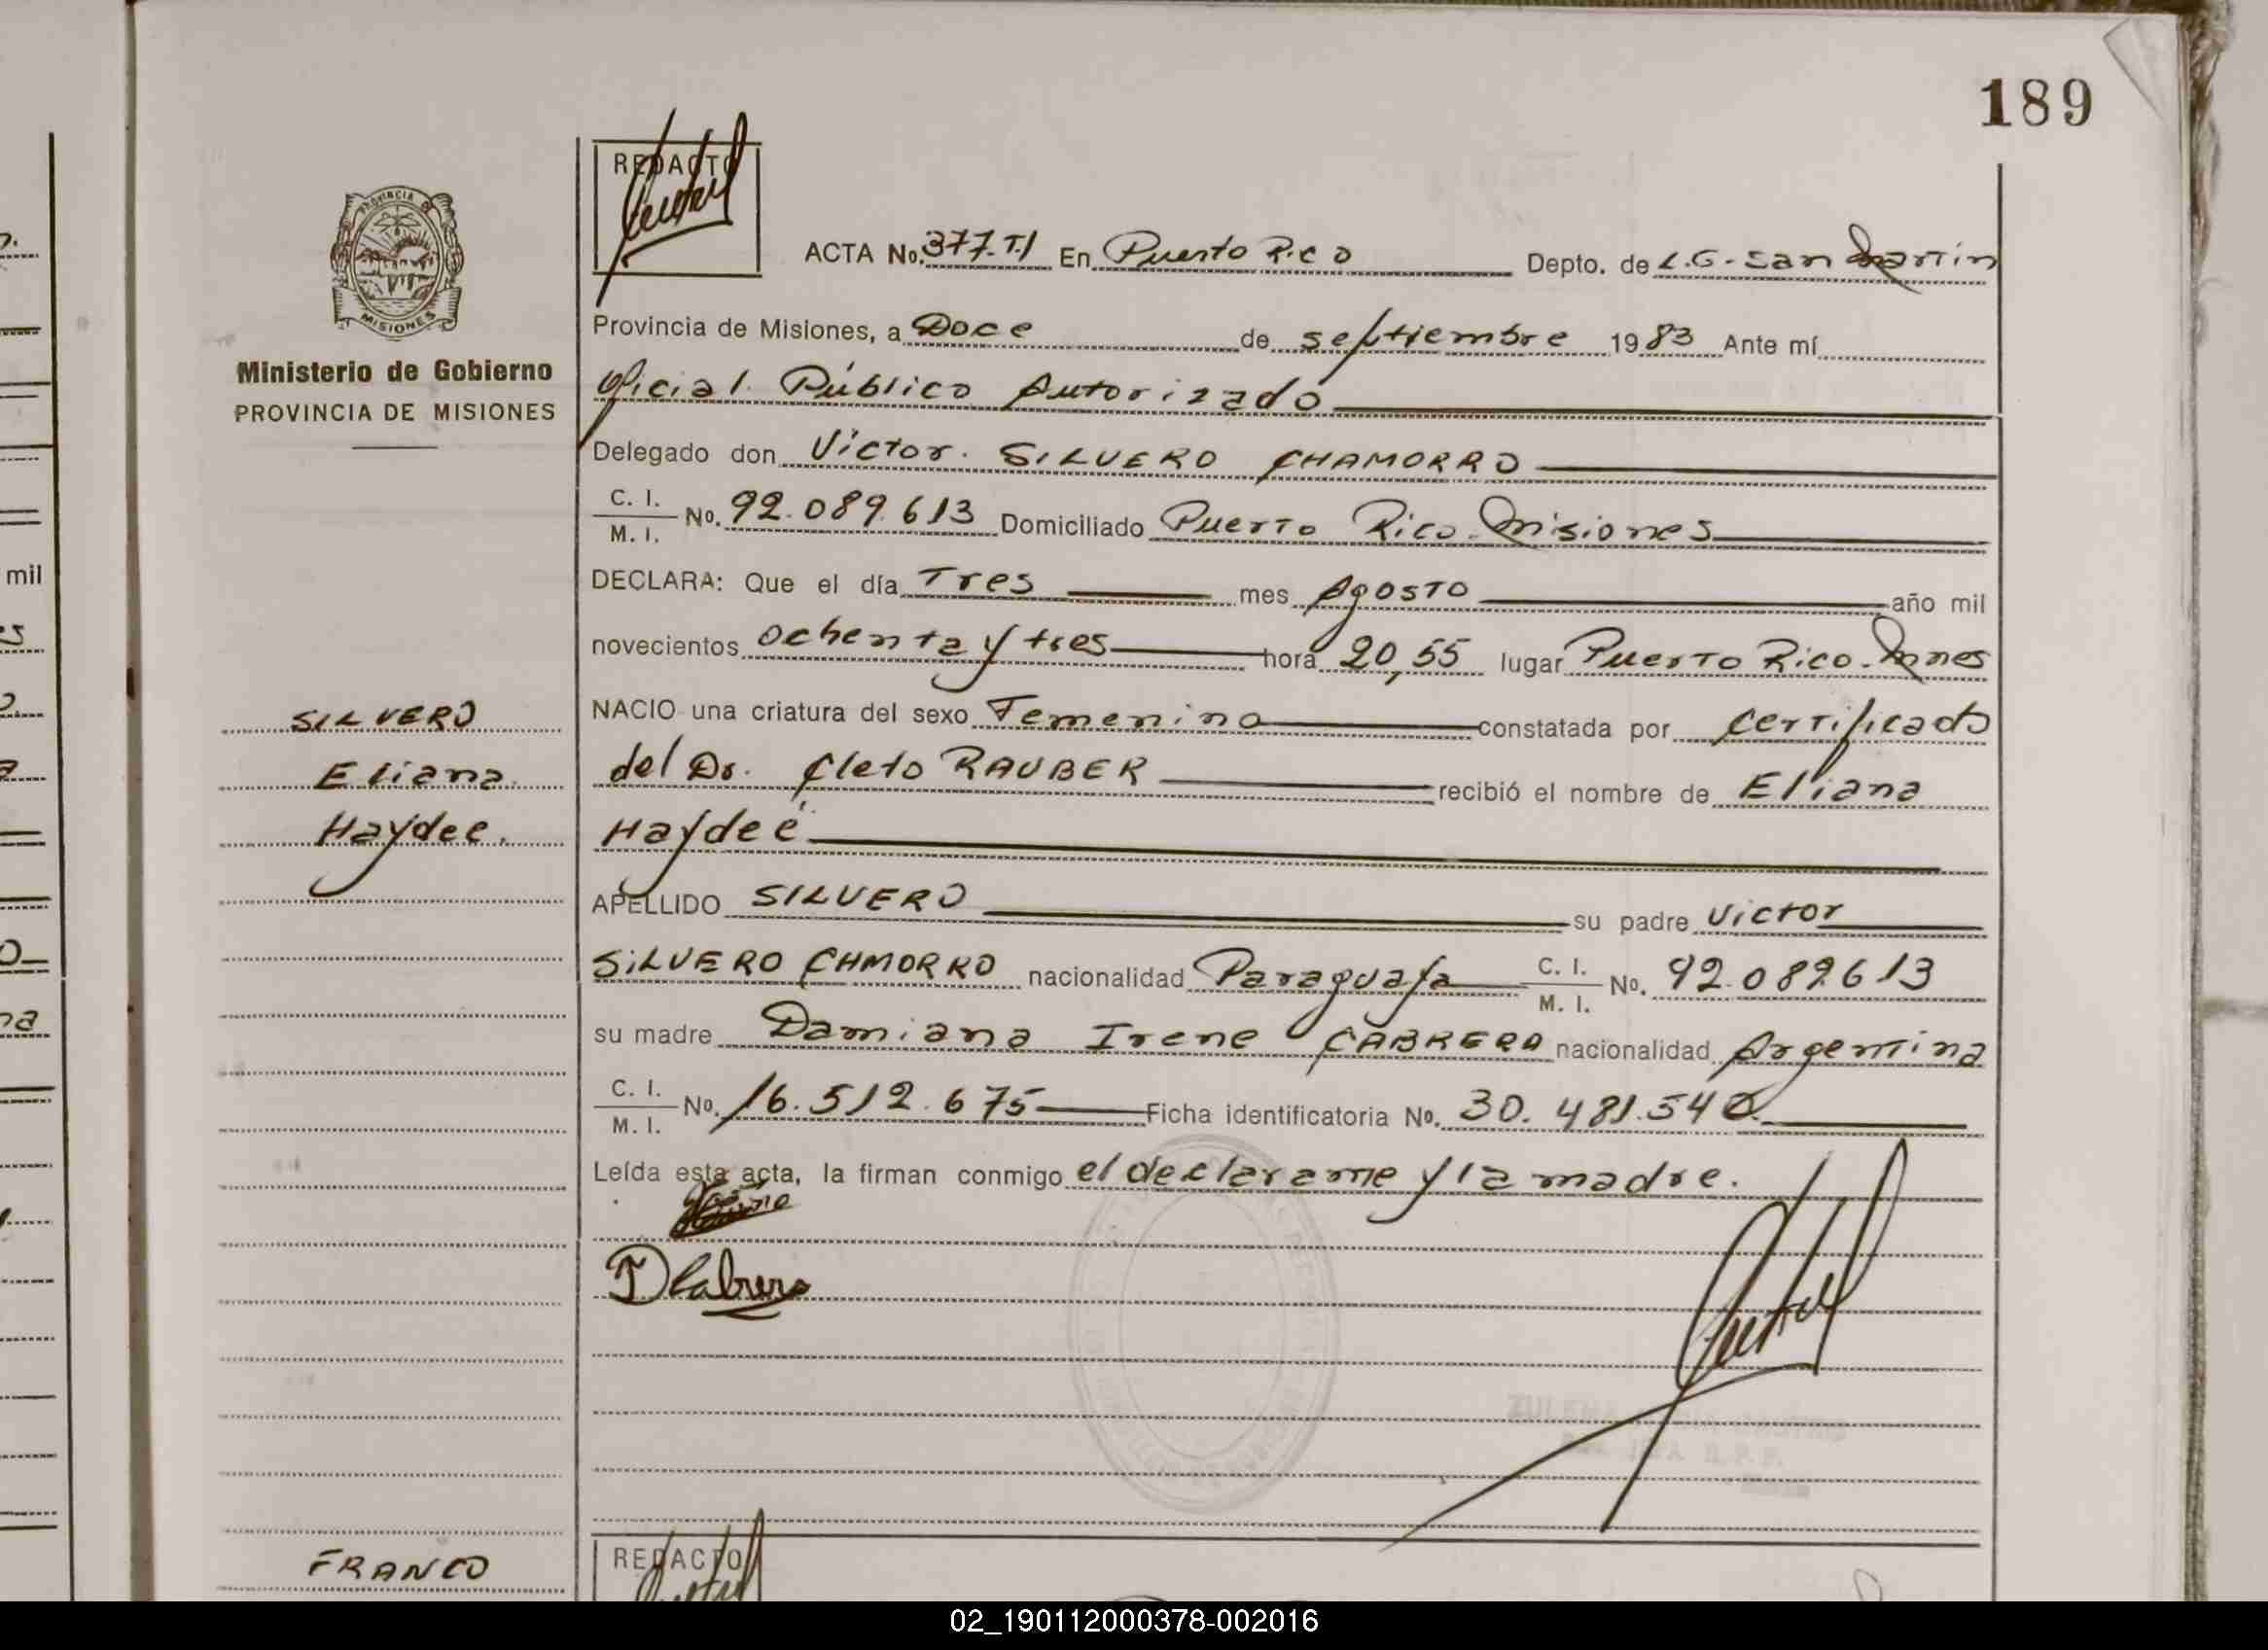 189
REDACTO
ACTA No. 377. T.I En Puerto Rico Depto. de L.G. San Martín
PROVINCIA DE MISIONES
Provincia de Misiones, a Doce de septiembre 1983 Ante mí
Ministerio de Gobierno
PROVINCIA DE MISIONES
Oficial Público Autorizado
Delegado don Victor SILVERO CHAMORRO
C. I. M. I. No. 92.089.613 Domiciliado Puerto Rico. Misiones
DECLARA: Que el día Tres mes Agosto año mil
novecientos ochenta y tres hora 20,55 lugar Puerto Rico. Mnes
SILVERO
NACIO una criatura del sexo Femenino constatada por certificado
Eliana
del Dr. Cleto RAUBER recibió el nombre de Eliana
Haydee.
Haydeé
APELLIDO SILVERO su padre Victor
SILVERO CHMORRO nacionalidad Paraguaya C. I. M. I. No. 92.089.613
su madre Damiana Irene CABRERA nacionalidad Argentina
C. I. M. I. No. 16.512.675 Ficha identificatoria No. 30.481.540.
Leída esta acta, la firman conmigo el declarante y la madre.
D Cabrera
FRANCO
REDACTO
02_190112000378-002016